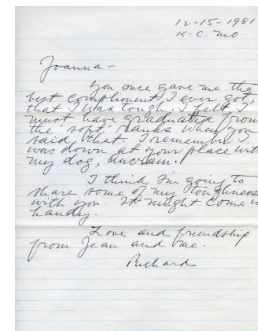 12-15-1981
K.C. Mo.
Joanna-
You once gave me the
best compliment I ever got,
that I was tough. I felt I
must have graduated from
the "soft" ranks when you
said that. I remember I
was down at your place with
my dog,
I think I'm going to
share some of my toughness
with you. It might come in
handy.
Love and friendship
from Jean and me.
Richard